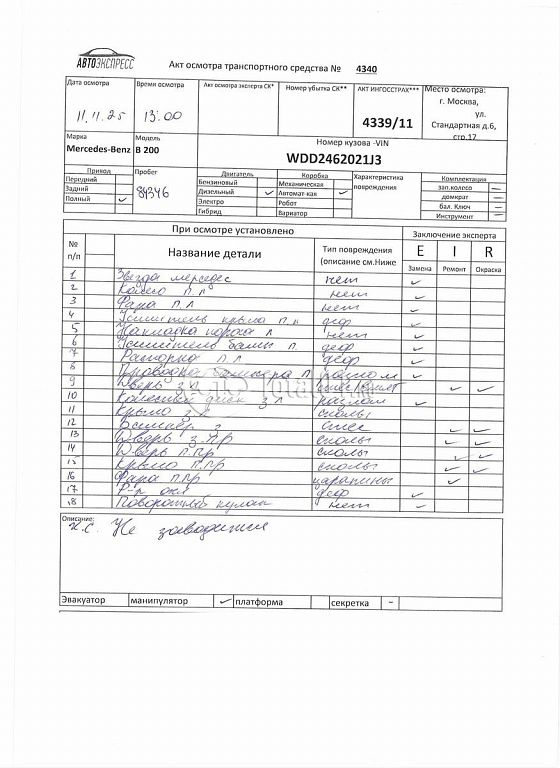 АВТОЭКСПРЕСС
Акт осмотра транспортного средства № 4340
Дата осмотра
Время осмотра
Акт осмотра эксперта СК*
Номер убытка СК**
АКТ ИНГОССТРАХ***
Место осмотра:
г. Москва,
ул.
Стандартная д.6,
стр.17
11.11.25
13:00
4339/11
Марка
Модель
Номер кузова -VIN
Mercedes-Benz
B 200
WDD2462021J3
Привод
Пробег
Двигатель
Коробка
Характеристика
повреждения
Комплектация
Передний
Бензиновый
Механическая
зап.колесо –
Задний
84346
Дизельный ✓
Автомат-кая ✓
домкрат –
Полный ✓
Электро
Робот
бал. Ключ –
Гибрид
Вариатор
Инструмент –
При осмотре установлено
Заключение эксперта
№ п/п
Название детали
Тип повреждения
(описание см.Ниже
E I R
Замена Ремонт Окраска
1 Звезда мерседес нет ✓
2 Колесо п.л нет ✓
3 Фара п.л нет ✓
4 Усилитель крыла п.л деф ✓
5 Накладка порога л нет ✓
6 Усилитель балки п. деф ✓
7 п.л деф ✓
8 бампера п разлом ✓
9 Дверь з.л ✓ ✓
10 Колесный диск з л разлом ✓
11 Крыло з.л сколы
12 Бампер з ✓ ✓
13 Дверь з.пр сколы ✓ ✓
14 Дверь п.пр сколы ✓ ✓
15 Крыло п.пр сколы ✓ ✓
16 Фара п.пр царапины ✓
17 Р-р охл деф ✓
18 Поворотный кулак нет ✓
Описание:
Н.С. Не заводится
Эвакуатор
манипулятор ✓
платформа
секретка –